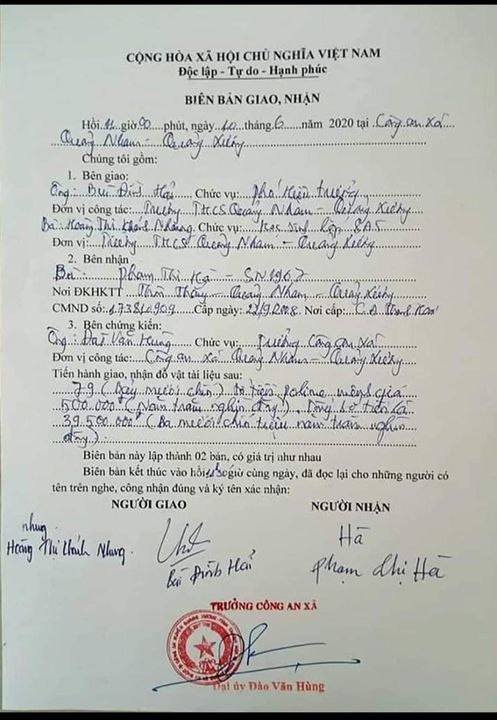 CỘNG HÒA XÃ HỘI CHỦ NGHĨA VIỆT NAM
Độc lập - Tự do - Hạnh phúc
BIÊN BẢN GIAO, NHẬN
Hồi giờ 00 phút, ngày 10 tháng 6 năm 2020 tại Công an xã
Quảng Nham - Quảng Xương
Chúng tôi gồm:
1. Bên giao:
Ông: Bùi Đình Hải Chức vụ: Phó hiệu trưởng
Đơn vị công tác: Trường THCS Quảng Nham - Quảng Xương
Bà: Hoàng Thị Khánh Nhung Chức vụ: Học sinh lớp 8A5
Đơn vị: Trường THCS Quảng Nham - Quảng Xương
2. Bên nhận
Bà: Phạm Thị Hà - SN 1967
Nơi ĐKHKTT Thôn Thắng - Quảng Nham - Quảng Xương
CMND số: 173810909 Cấp ngày: 22/9/2008 Nơi cấp: C.A Thanh Hoá
3. Bên chứng kiến:
Ông: Đào Văn Hùng Chức vụ: Trưởng Công an xã
Đơn vị công tác: Công an xã Quảng Nham - Quảng Xương
Tiến hành giao, nhận đồ vật tài liệu sau:
79 (Bảy mươi chín) tờ tiền polime mệnh giá
500.000đ (Năm trăm nghìn đồng). Tổng số tiền là
39.500.000đ (Ba mươi chín triệu năm trăm nghìn
đồng).
Biên bản này lập thành 02 bản, có giá trị như nhau
Biên bản kết thúc vào hồi giờ cùng ngày, đã đọc lại cho những người có
tên trên nghe, công nhận đúng và ký tên xác nhận:
NGƯỜI GIAO NGƯỜI NHẬN
nhung
Hoàng Thị Khánh Nhung
Bùi Đình Hải
Hà
Phạm Thị Hà
TRƯỞNG CÔNG AN XÃ
Đại úy Đào Văn Hùng